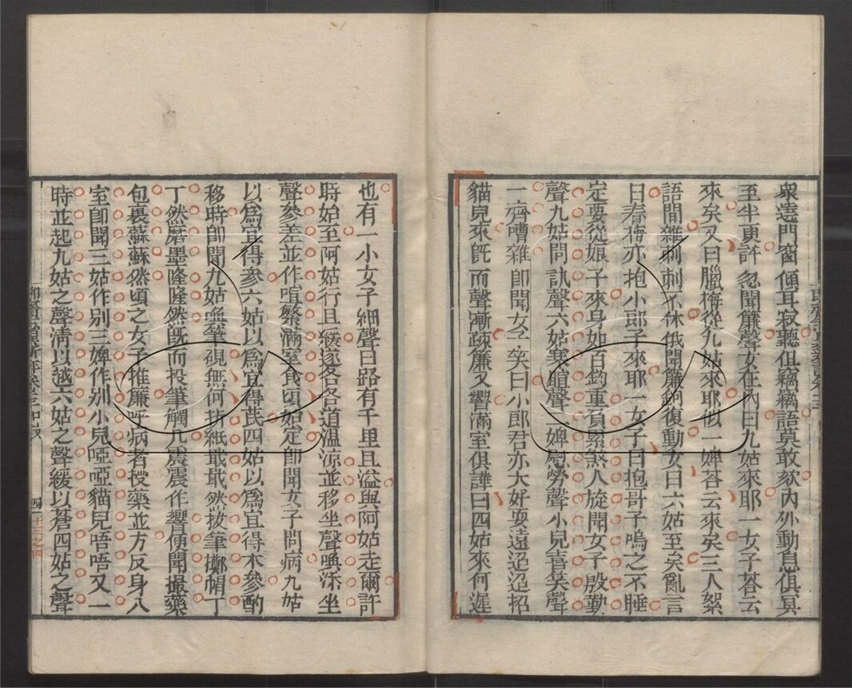 衆遶門窗傾耳寂聽但竊竊語莫敢欬內外動息俱冥
至半更許忽聞簾聲女在內曰九姑來耶一女子荅云
來矣又曰臘梅從九姑來耶似一婢荅云來矣三人絮
語間雜刺刺不休俄聞簾鉤復動女曰六姑至矣亂言
曰春梅亦抱小郎子來耶一女子曰拗哥子嗚之不睡
定要從娘子來身如百鈞重負累煞人旋聞女子殷勤
聲九姑問訊聲六姑寒暄聲二婢慰勞聲小兒喜笑聲
一齊嘈雜即聞女子笑曰小郎君亦大好耍遠迢迢抱
貓兒來旣而聲漸疎簾又響滿室俱譁曰四姑來何遲
也有一小女子細聲曰路有千里且溢與阿姑走爾許
時始至阿姑行且緩遂各各道溫涼並移坐聲喚添坐
聲參差並作喧繁滿室食頃始定即聞女子問病九姑
以爲宜得參六姑以爲宜得芪四姑以爲宜得朮參酌
移時即聞九姑喚筆硯無何折紙戢戢然拔筆擲帽丁
丁然磨墨隆隆然旣而投筆觸几震震作響便聞撮藥
包裹蘇蘇然頃之女子推簾呼病者授藥並方反身入
室即聞三姑作別三婢作別小兒啞啞貓兒唔唔又一
時並起九姑之聲淸以越六姑之聲緩以蒼四姑之聲